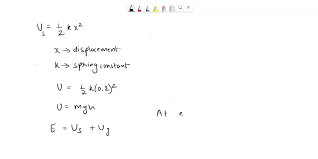 U_s = 1/2 k x²
x → displacement
k → spring constant
U = 1/2 k(0.2)²
U = mgh
At e
E = U_s + U_g